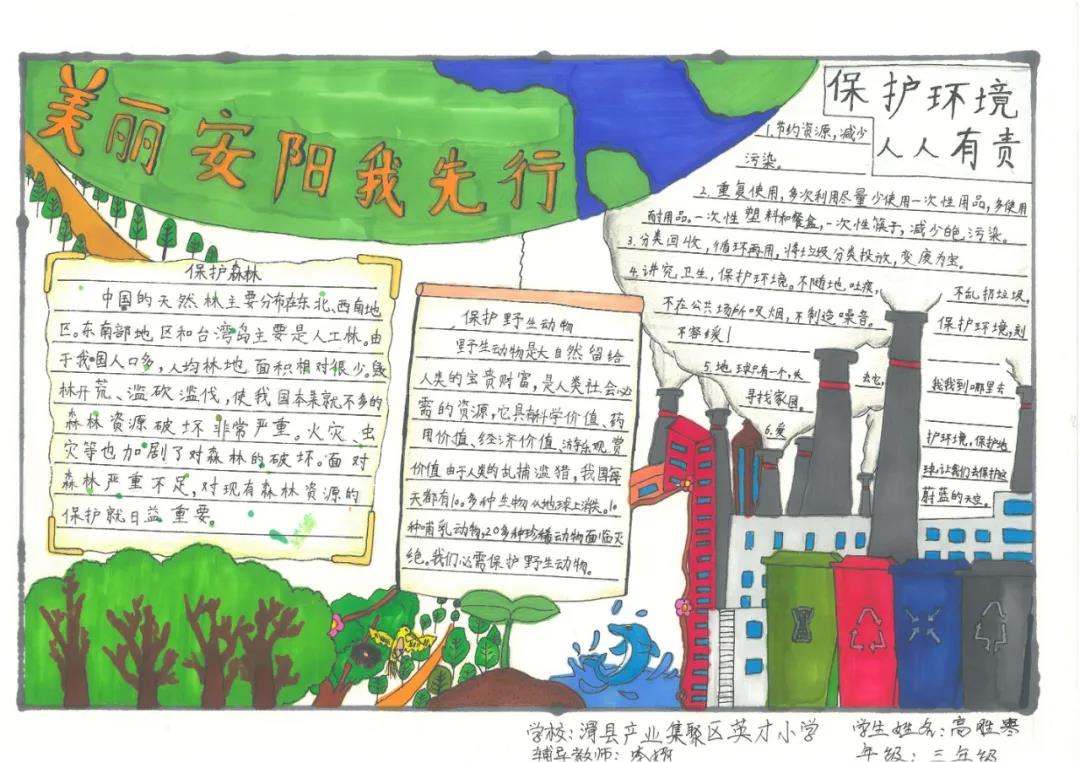 美丽安阳我先行
保护环境
人人有责
保护森林
中国的天然林主要分布在东北、西南地
区。东南部地区和台湾岛主要是人工林。由
于我国人口多，人均林地面积相对很少。毁
林开荒、滥砍滥伐，使我国本来就不多的
森林资源破坏非常严重。火灾、虫
灾等也加剧了对森林的破坏。面对
森林严重不足，对现有森林资源的
保护就日益重要。
保护野生动物
野生动物是大自然留给
人类的宝贵财富，是人类社会必
需的资源，它具有科学价值、药
用价值、经济价值、游乐观赏
价值由于人类的乱捕滥猎，我国每
天都有100多种生物从地球上消失。10
种哺乳动物，20多种珍稀动物面临灭
绝。我们必需保护野生动物。
1.节约资源，减少
污染。
2.重复使用，多次利用尽量少使用一次性用品，多使用
耐用品。一次性塑料和餐盒，一次性筷子，减少白色污染。
3.分类回收，循环再用，将垃圾分类投放，变废为宝。
4.讲究卫生，保护环境。不随地吐痰，不乱扔垃圾，
不在公共场所吸烟，不制造噪音。保护环境，刻
不容缓！
5.地球只有一个，失去它，我我到哪里去
寻找家园。
6.爱护环境，保护地
球，让我们去保护这
蔚蓝的天空。
学校：滑县产业集聚区英才小学
学生姓名：高胜寒
辅导教师：
年级：三年级